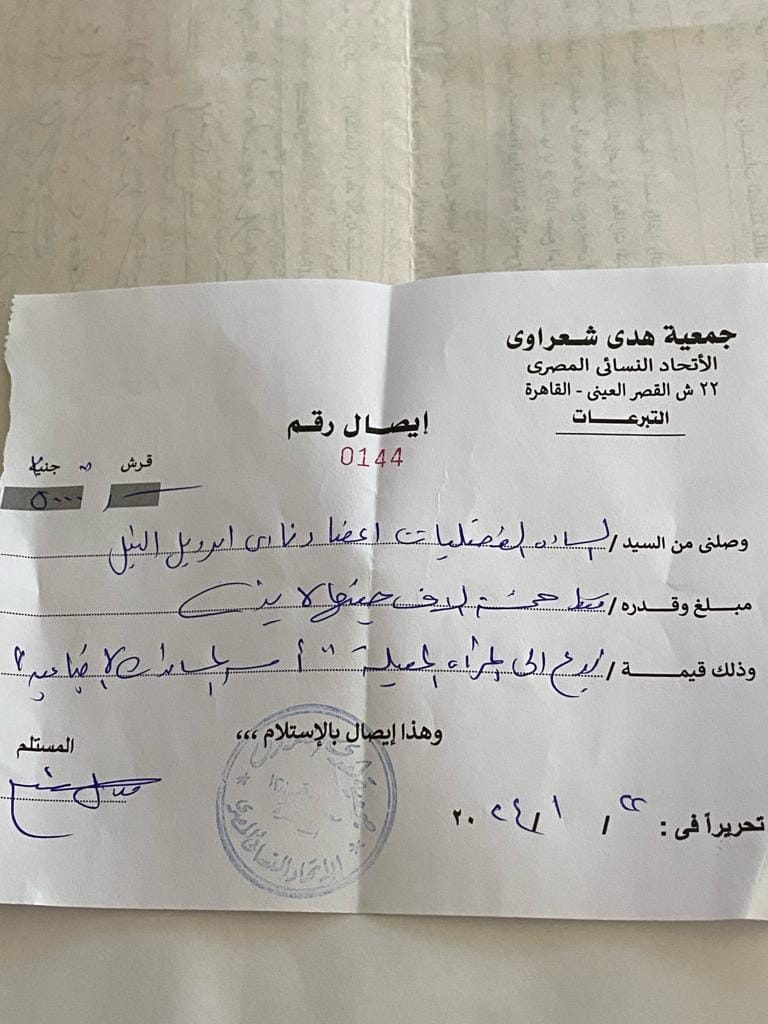 جمعية هدى شعراوى
الأتحاد النسائى المصرى
٢٢ ش القصر العينى - القاهرة
التبرعات
إيصال رقم
0144
قرش
جنية
٥٠٠٠
وصلنى من السيد / الساده اعضاء نادى النيل
مبلغ وقدره / فقط خمسة الاف جنيها لا غير
وذلك قيمة / تبرع الى المرأه المعيلة
وهذا إيصال بالإستلام ،،،
المستلم
تحريراً فى : ٢٢ / ١ / ٢٠٢٤
الاتحاد النسائى المصرى